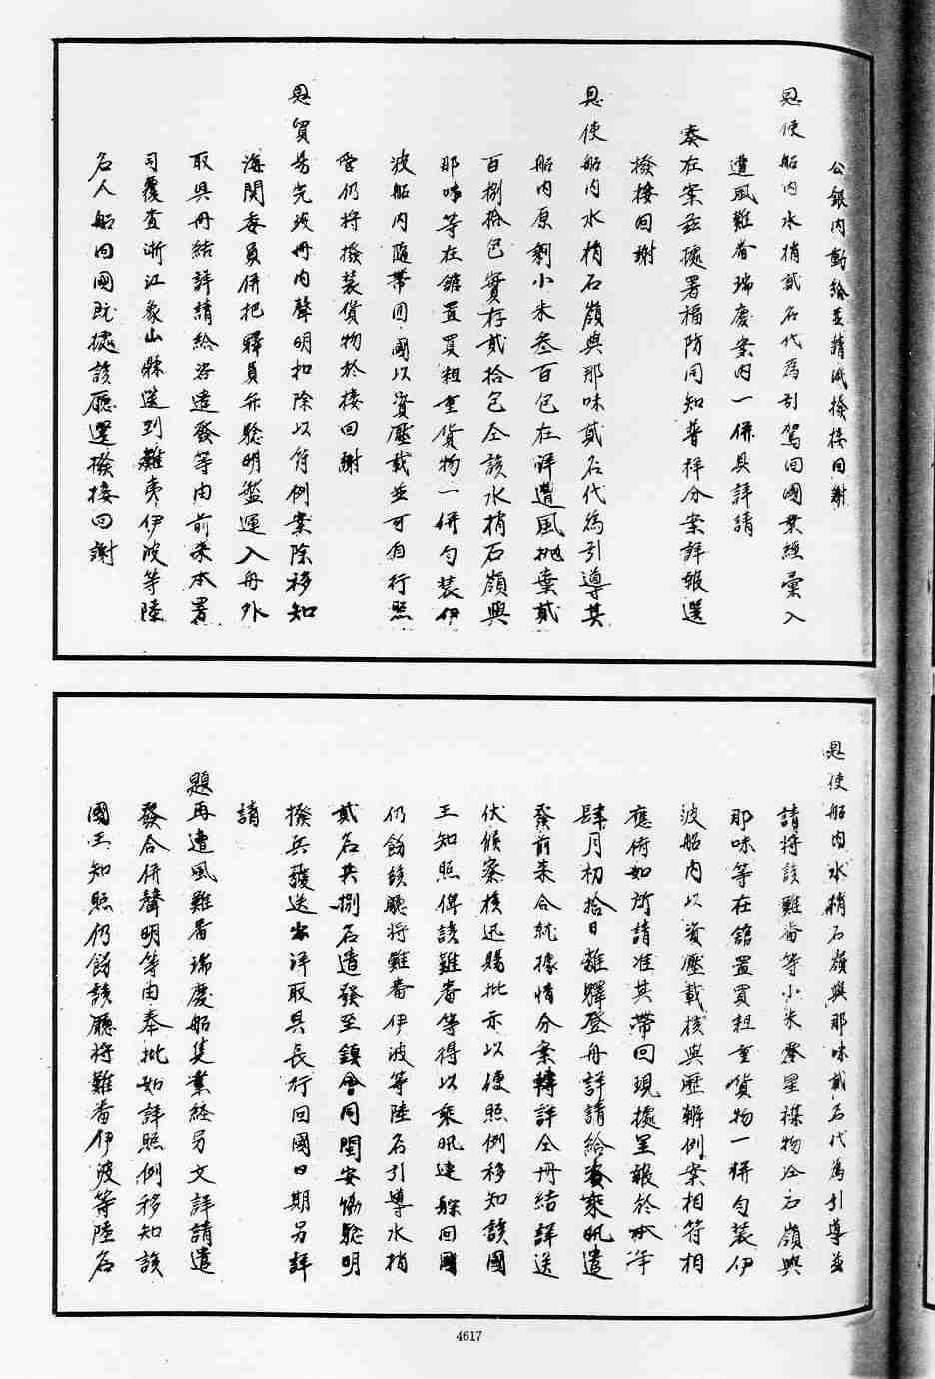 公銀內動給並請咸撥接回謝
恩使船內水梢貳名代為引駕回國業經彙入
遭風難番瑞慶案內一併具詳請
奏在案茲據署福防同知普祥分案詳報選
撥接回謝
恩使船內水梢石嶺與那味貳名代為引導其
船內原剩小米叁百包在洋遭風拋棄貳
百捌拾包實存貳拾包仝該水梢石嶺與
那味等在館置買粗重貨物一併勻裝伊
波船內隨帶回國以資壓載並可自行照
管仍將撥裝貨物於接回謝
恩貿易完竣冊內聲明扣除以符例案除移知
海關委員併把驛員弁驗明盤運入舟外
取具冊結詳請給咨遣發等由前來本署
司覆查浙江象山縣送到難夷伊波等陸
名人船回國既據該廳選撥接回謝
恩使船內水梢石嶺與那味貳名代為引導並
請將該難番等小米零星糧物仝石嶺與
那味等在館置買粗重貨物一併勻裝伊
波船內以資壓載核與歷辦例案相符相
應俯如所請准其帶回現據呈報於本年
肆月初拾日離驛登舟詳請給咨乘汛遣
發前來合就據情分案轉詳仝冊結詳送
伏候察核迅賜批示以便照例移知該國
王知照俾該難番等得以乘汛速歸回國
仍飭該廳將難番伊波等陸名引導水梢
貳名共捌名遣發至鎮會同閩安協驗明
撥兵護送出洋取具長行回國日期另詳
請
題再遭風難番瑞慶船隻業經另文詳請遣
發合併聲明等由奉批如詳照例移知該
國王知照仍飭該廳將難番伊波等陸名
4617